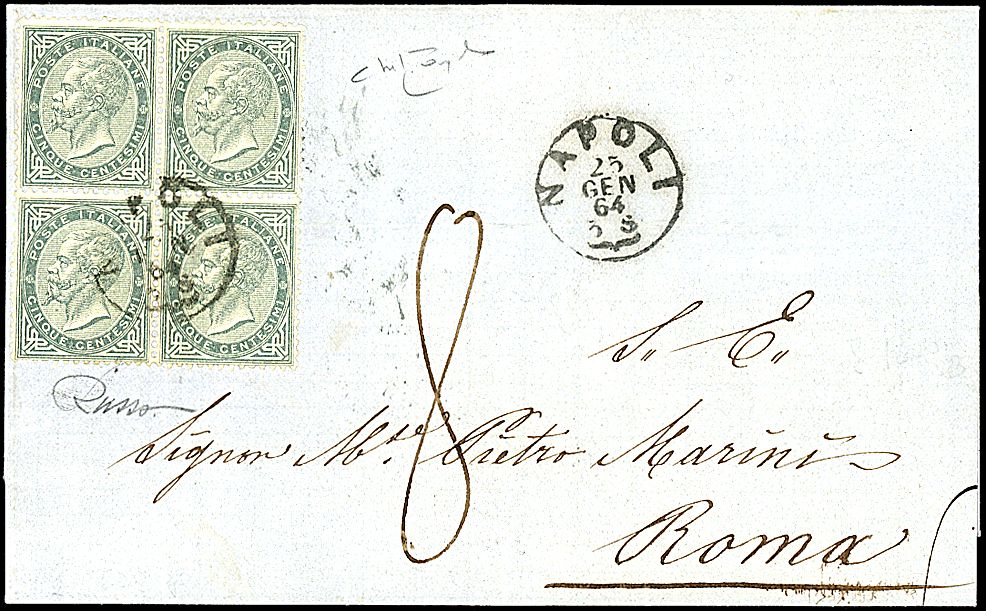 POSTE ITALIANE
CINQUE CENTESIMI
POSTE ITALIANE
CINQUE CENTESIMI
POSTE ITALIANE
CINQUE CENTESIMI
POSTE ITALIANE
CINQUE CENTESIMI
NAPOLI
25
GEN
64
3 S
8
S. E.
Russo
Signor Mse. Pietro Marini
Roma